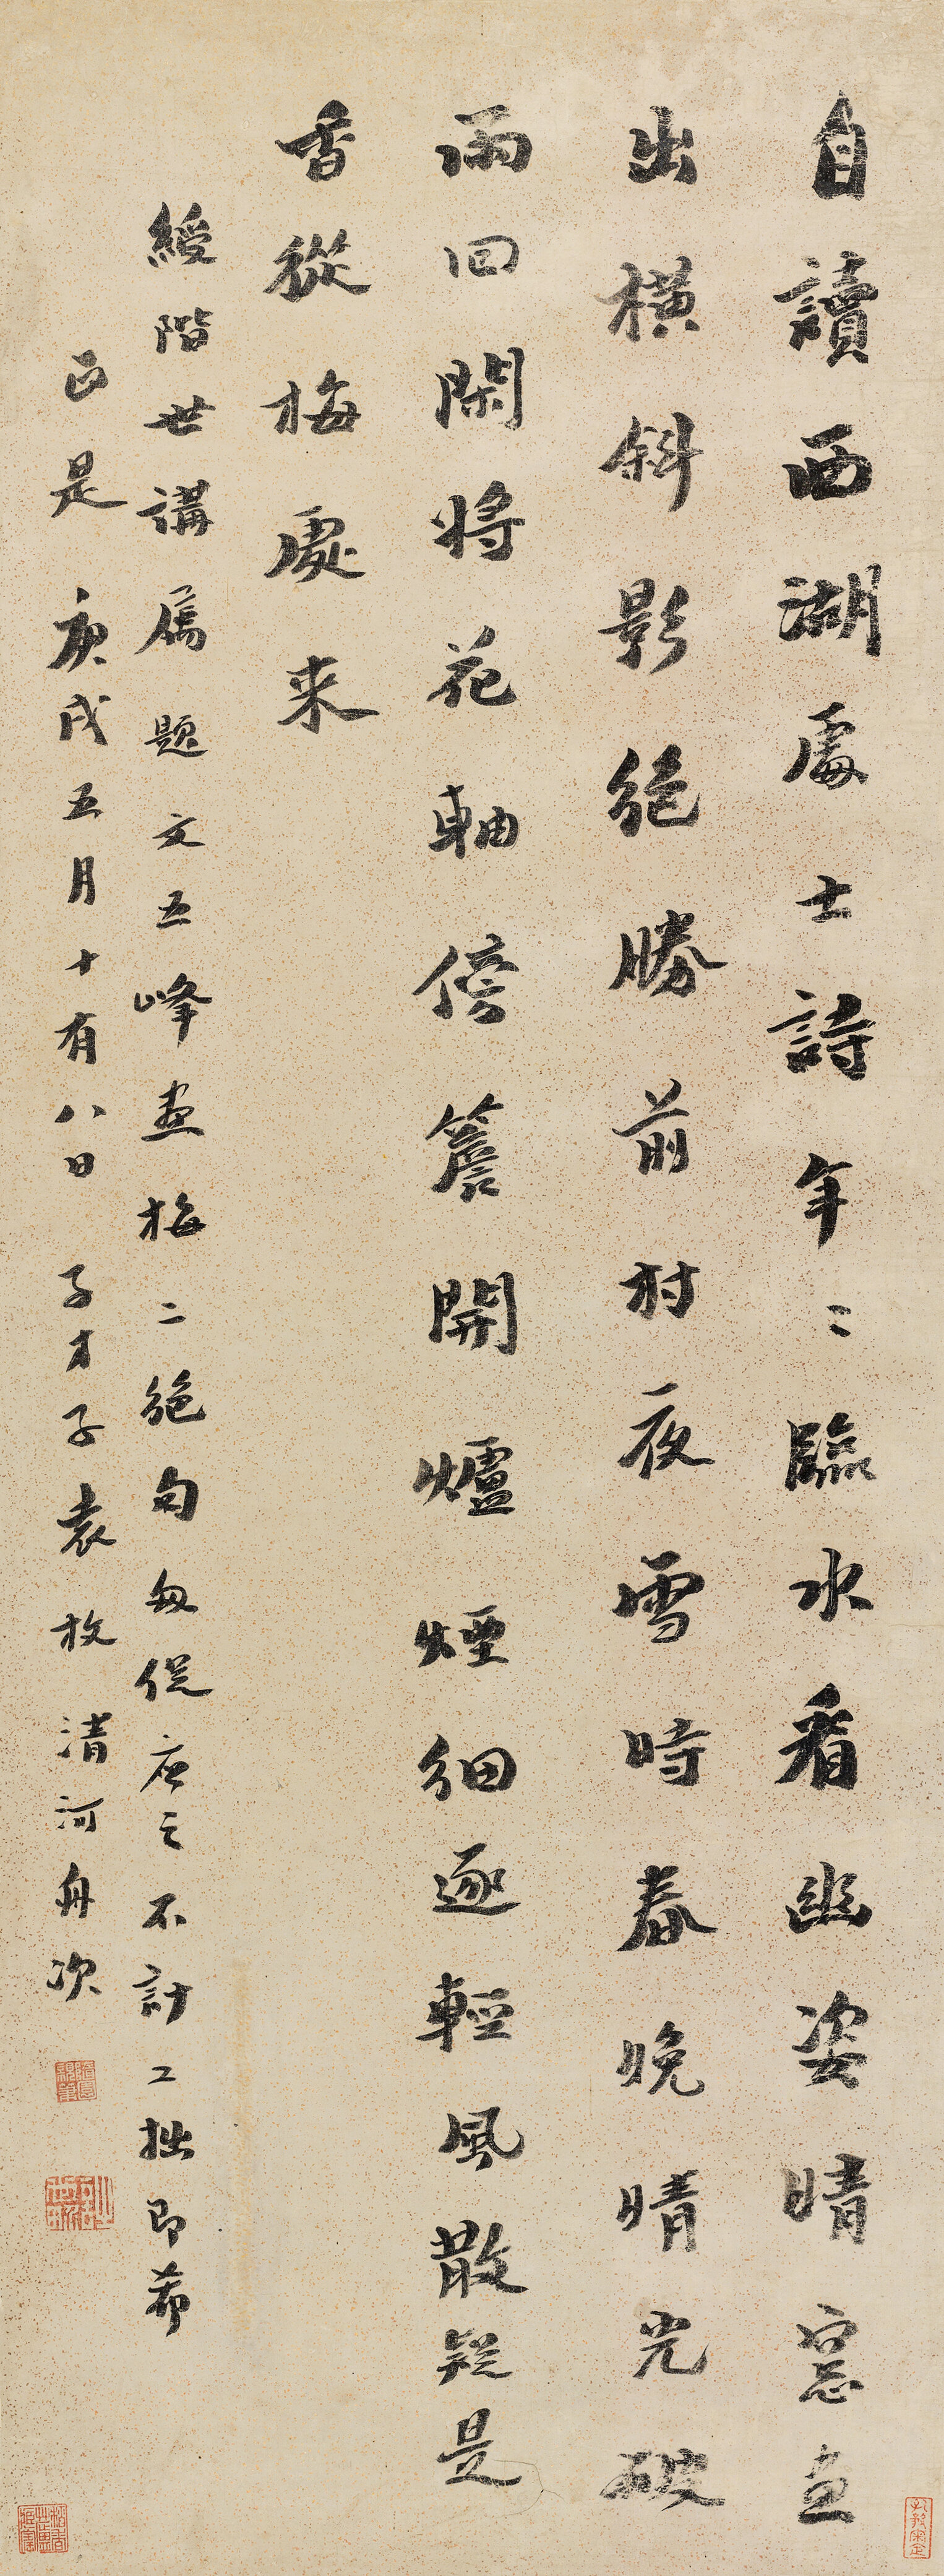 自讀西湖處士詩年〻臨水看幽姿晴窓畫
出橫斜影絕勝前村夜雪時春晚晴光破
雨回閑將花軸倚簷開爐煙細逐輕風散疑是
香從梅處来
綬階世講属題文五峰畫梅二絕句匆促应之不計工拙即希
正是庚戌五月十有八日子才子袁枚清河舟次